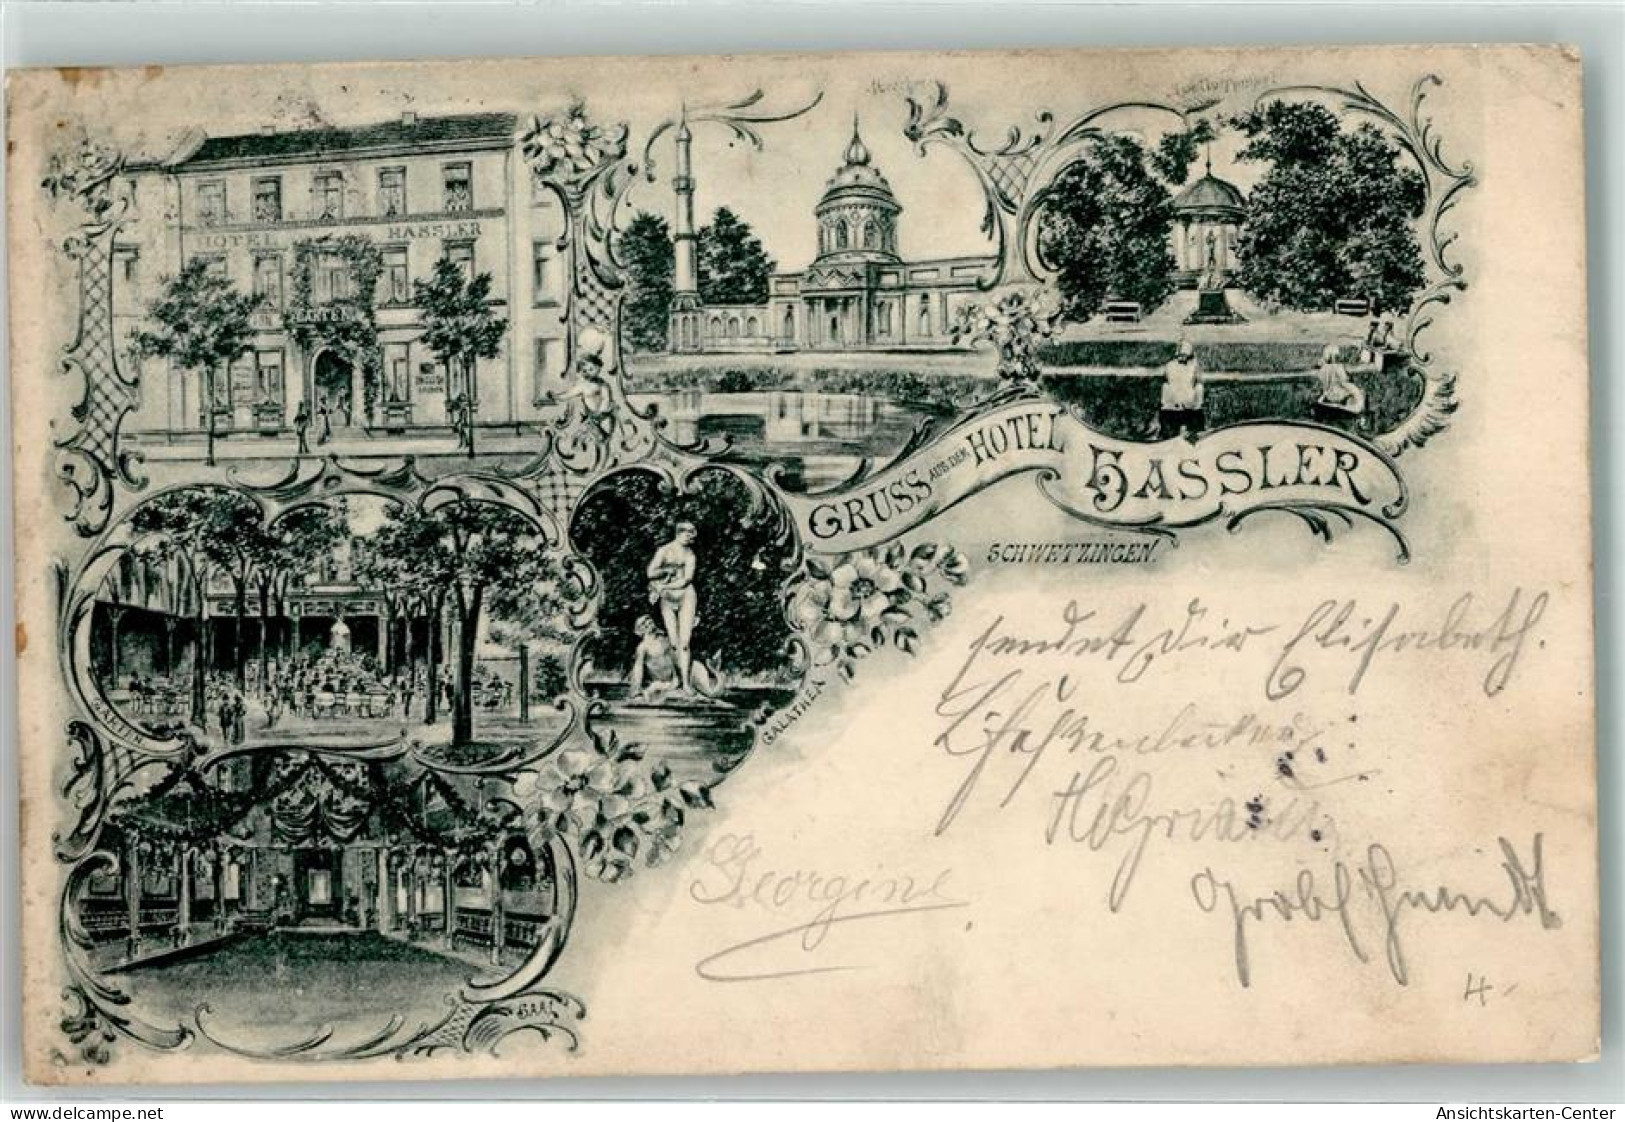 Moschee
Apollo Tempel
HOTEL HASSLER
GARTEN
GRUSS AUS DEM HOTEL HASSLER
SCHWETZINGEN.
GARTEN
GALATHEA
SAAL
sendet Dir Elisabeth.
Georgine
4.-
Ansichtskarten-Center